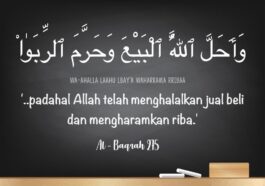 وَأَحَلَّ ٱللَّهُ ٱلْبَيْعَ وَحَرَّمَ ٱلرِّبَوٰا۟
WA-AHALLA LAAHU LBAY'A WAHARRAMA RRIBAA
'..padahal Allah telah menghalalkan jual beli
dan mengharamkan riba.'
Al - Baqrah 275